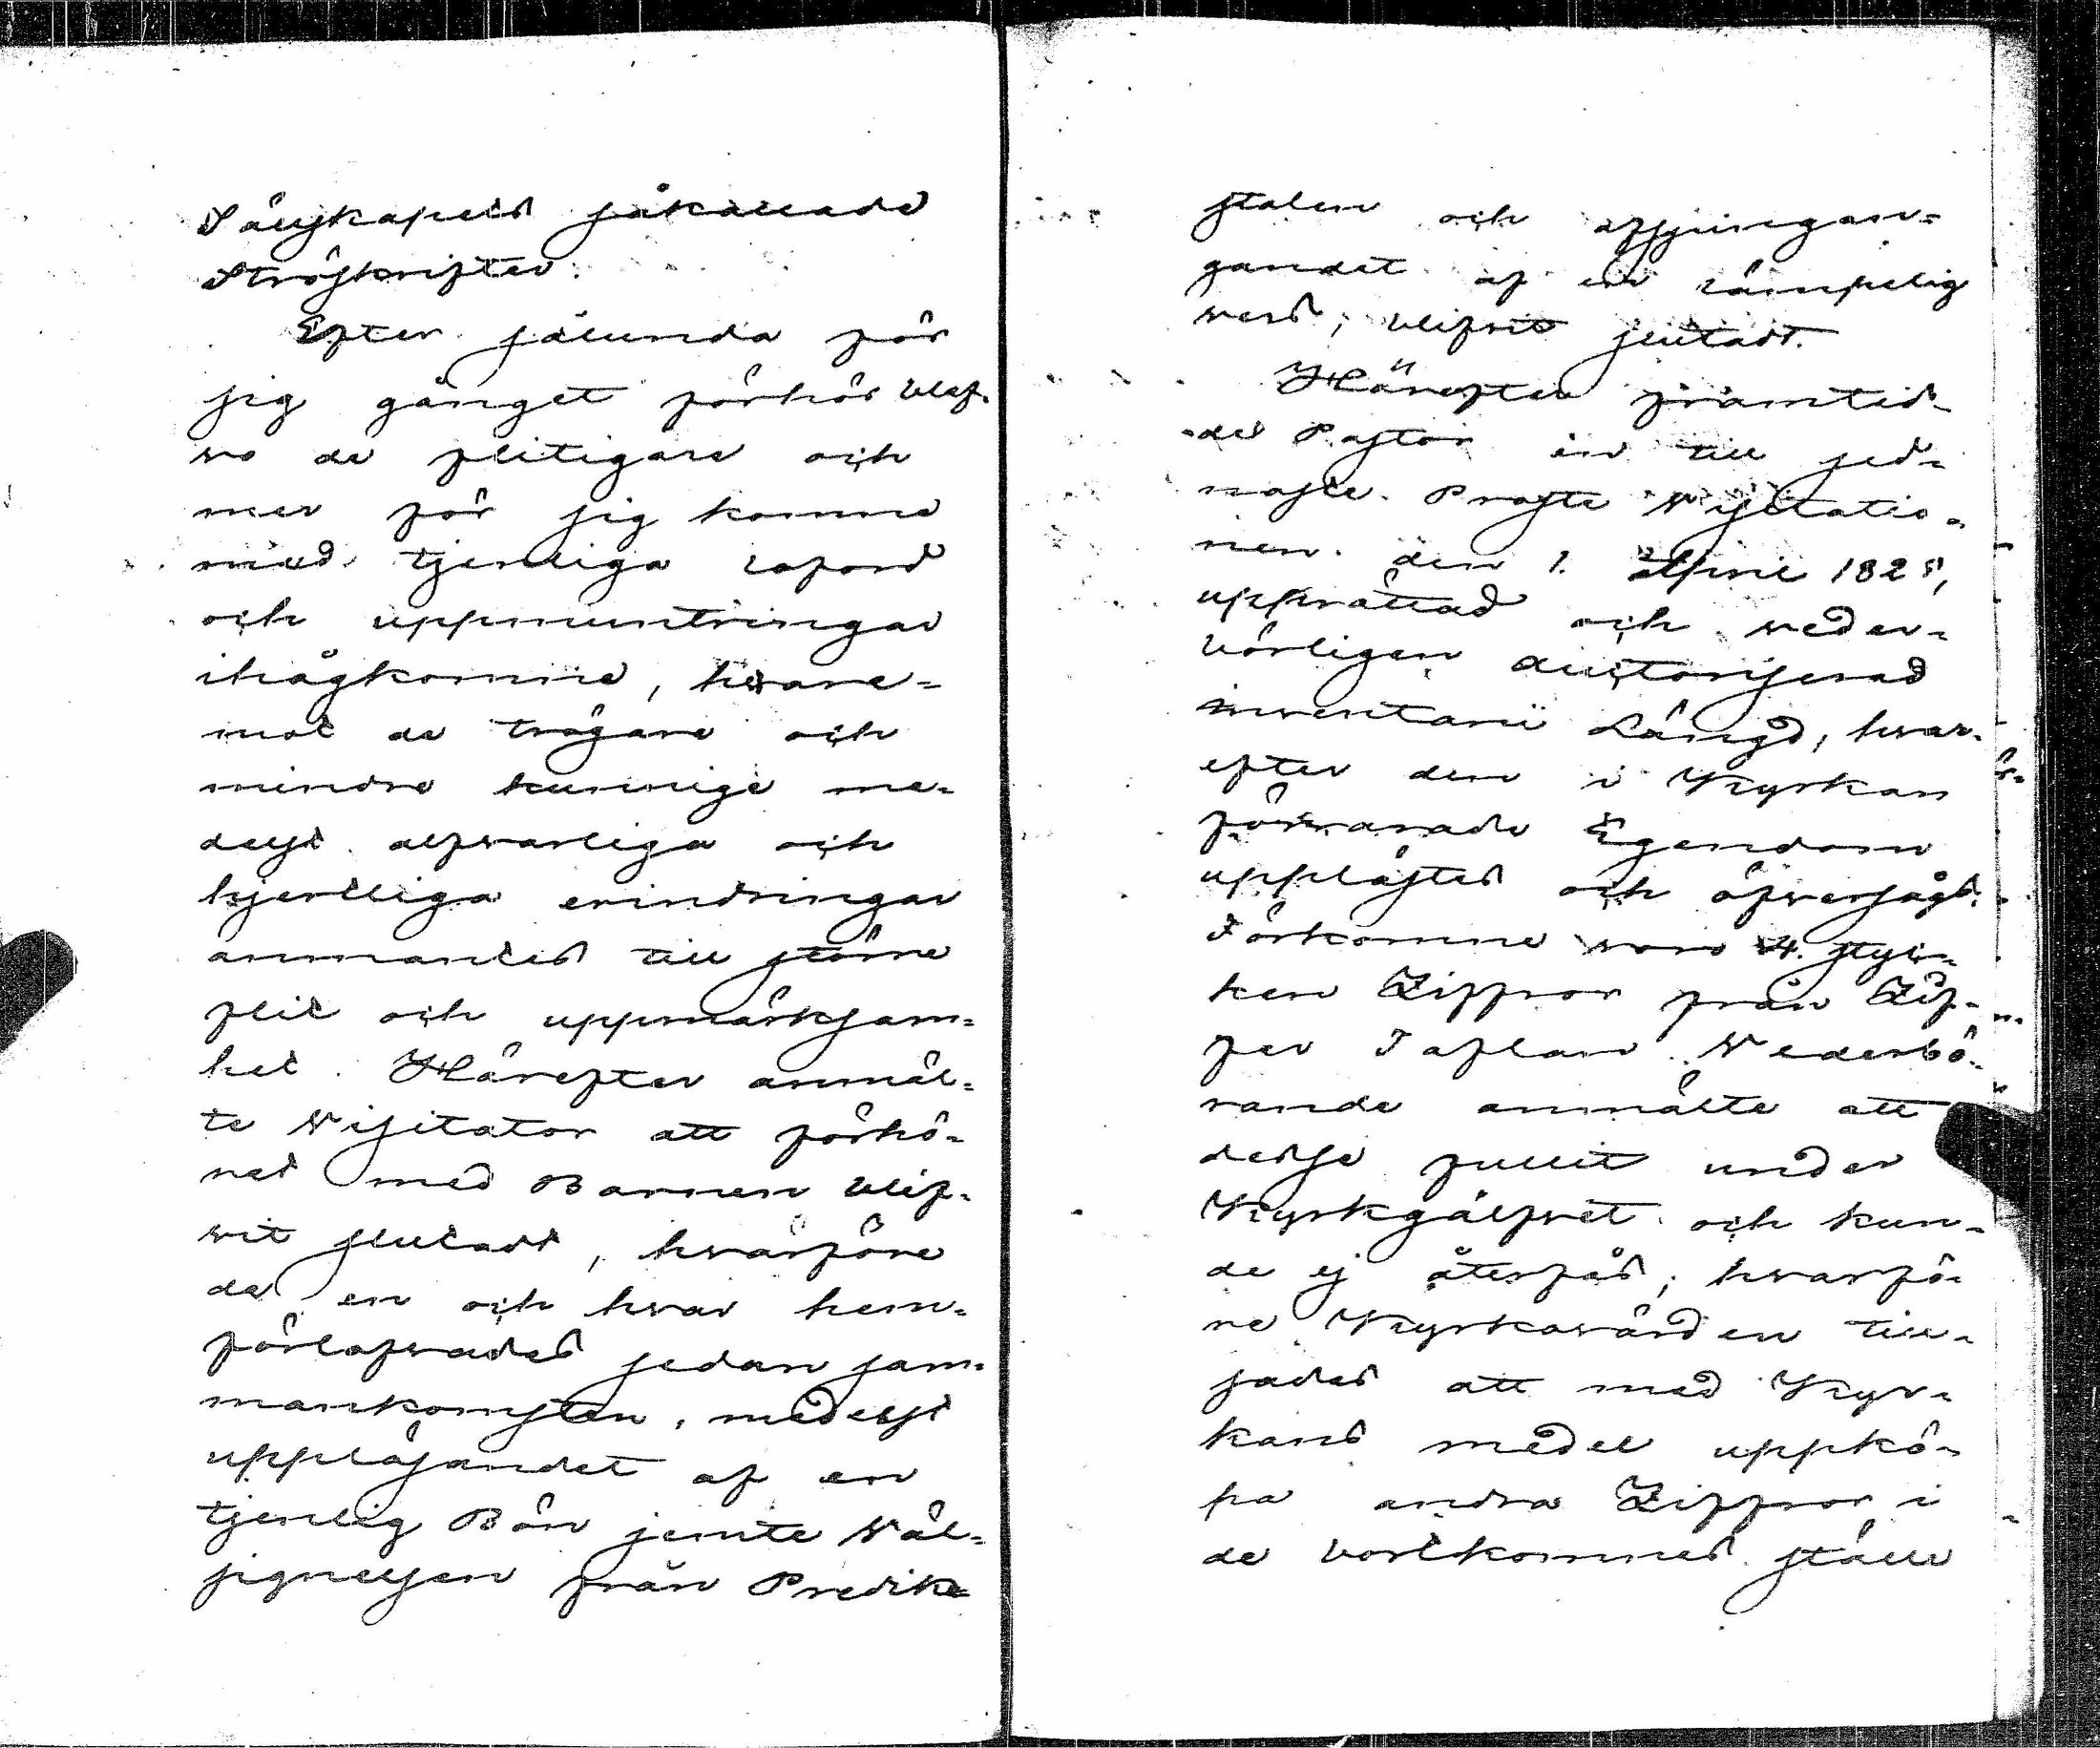 Sällskapets såkallade
Ströskrifter.
Efter sålunda för
sig gånget förhör blef-
vo de flitigare och
mer för sig komne
med tjenliga loford
och uppmuntringar
ihågkomne, hvare-
mot de trögare och
mindre kunnige me-
delst alfvarliga och
hjertliga erindringar
anmantes till större
flit och uppmärksam-
het. Härefter anmäl-
te Visitator att förhö-
ret med Barnen blif-
vit slutadt, hvarföre
de en och hvar hem-
förlofvades sedan sam-
mankomsten, medelst
uppläsandet af en
tjenlig Bön jemte Väl-
signelsen från Predik-
stolen och afsjungan-
gandet af en lämpelig
vers, blifvit slutadt.
Härefter framted-
de Pastor en till sed-
naste Proste Visitatio-
nen den 1. April 1828,
upprättad och veder-
börligen auctoriserad
inventarii Längd, hvar-
efter den i Kyrkan
förvarade Egendom
upplästes och öfversågs.
Förkomne voro 4. styc-
ken Ziffror från Zif-
fer Taflan. Vederbö-
rande anmälte att
desse fullit under
Kyrkgålfvet och kun-
de ej återfås; hvarfö-
re Kyrkovärden till-
sades att med Kyr-
kans medel uppkö-
pa andra Ziffror i
de bortkomnes ställe